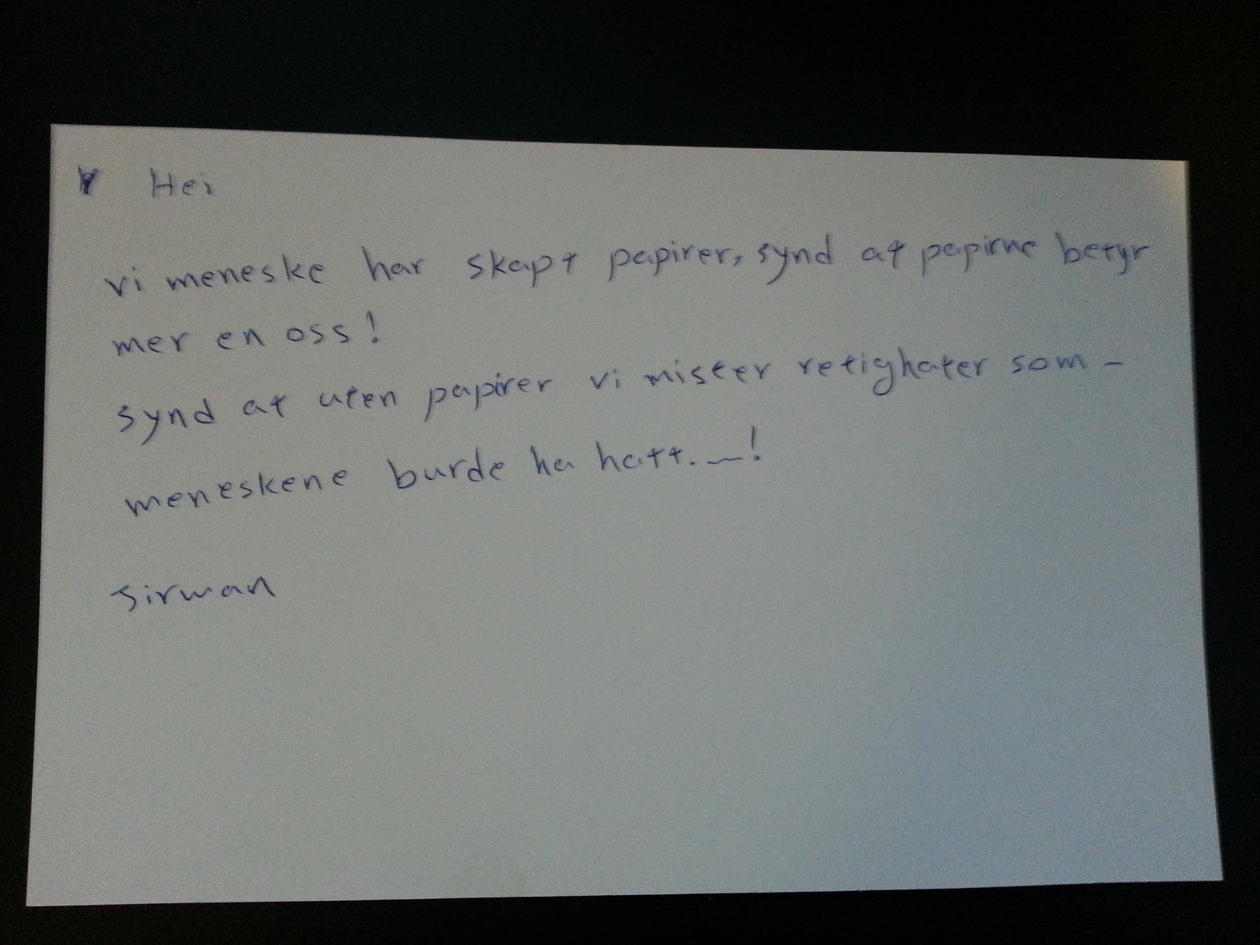 Hei
vi meneske har skapt papirer, synd at papirne betyr
mer en oss!
synd at uten papirer vi mister retighater som -
meneskene burde ha hatt. _ !
sirman